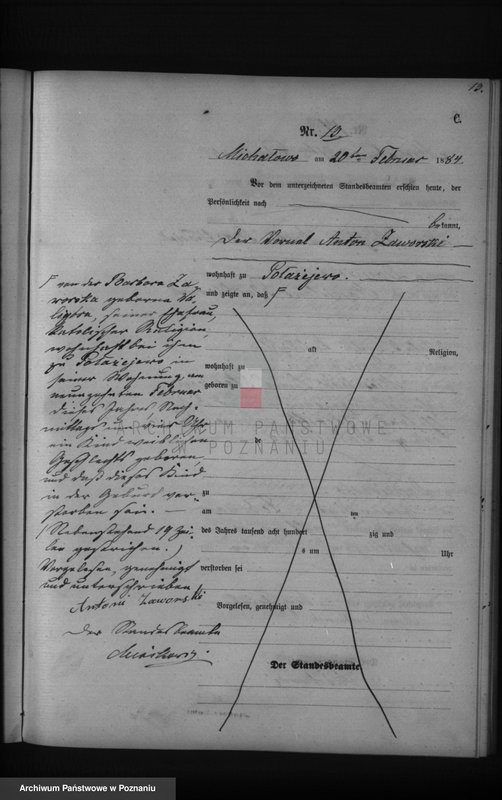 12.
C.
Nr. 12
Michalowo am 20ten Februar 1884.
Vor dem unterzeichneten Standesbeamten erschien heute, der
Persönlichkeit nach
bekannt,
Der Vornal Anton Zaworski
wohnhaft zu Polażejewo.
und zeigte an, daß
von der Barbara Za-
worska geborene
seiner Ehefrau,
katolischer Religion
wohnhaft bei ihm
zu Polażejewo in
seiner Wohnung am
neunzehnten Februar
dieses Jahres Nach-
mittags um vier Uhr
ein Kind weiblichen
Geschlechts geboren
und daß dieses Kind
in der Geburt ver-
storben sei. —
(Nebenstehend 19 Zei-
len gestrichen.)
Vorgelesen, genehmigt
und unterschrieben
Antoni Zaworski
Der Standesbeamte
alt Religion,
wohnhaft zu
geboren zu
de
zu
am ten
des Jahres tausend acht hundert zig und
s um Uhr
verstorben sei
Vorgelesen, genehmigt und
Der Standesbeamte
ARCHIWUM PAŃSTWOWE
W POZNANIU
Archiwum Państwowe w Poznaniu